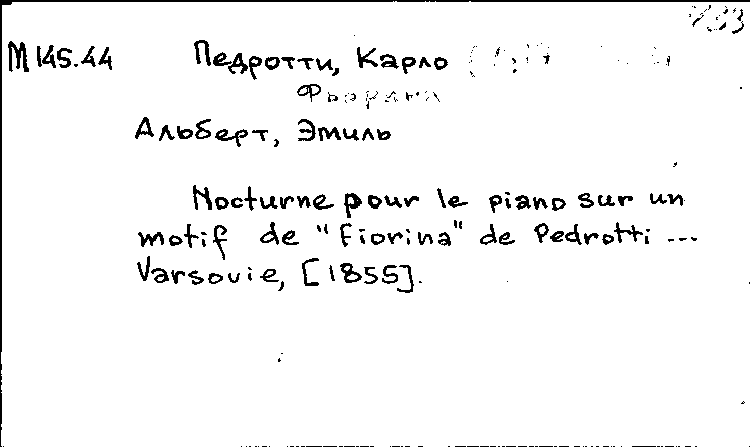 M 145.44 Педротти, Карло
Фьорина
Альберт, Эмиль
Nocturne pour le piano sur un
motif de "Fiorina" de Pedrotti ...
Varsovie, [1855].